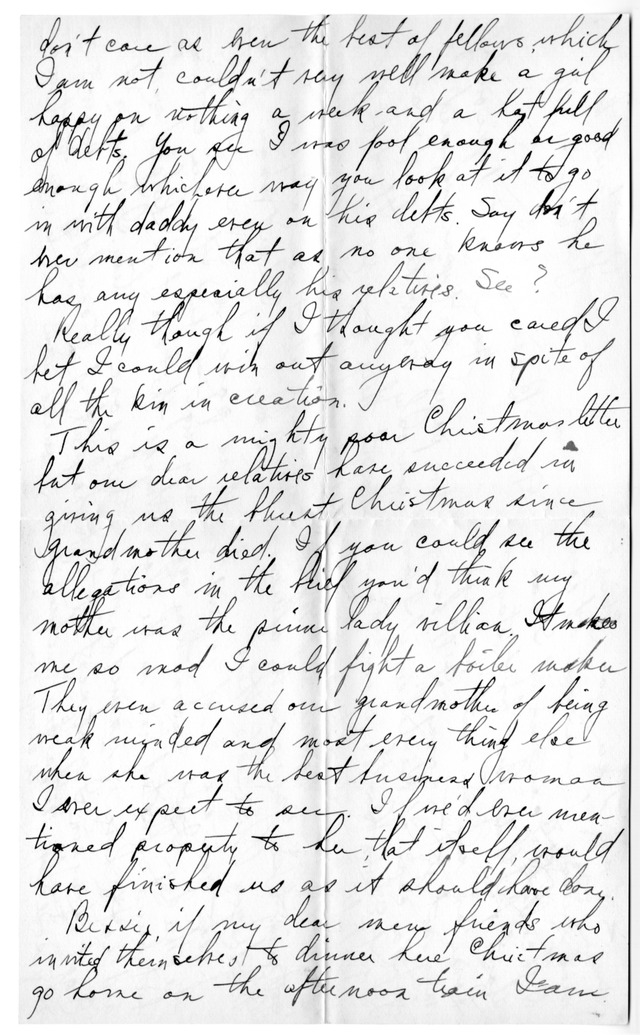 don't care as even the best of fellows, which
I am not, couldn't very well make a girl
happy on nothing a week and a hat full
of debts. You see I was fool enough or good
enough whichever way you look at it to go
in with daddy even on his debts. Say don't
ever mention that as no one knows he
has any especially his relatives. See?
Really though if I thought you cared I
bet I could win out anyway in spite of
all the kin in creation.
This is a mighty poor Christmas letter
but our dear relatives have succeeded in
giving us the bluest Christmas since
grandmother died. If you could see the
allegations in the brief you'd think my
mother was the prime lady villian. It makes
me so mad I could fight a boiler maker
They even accused our grandmother of being
weak minded and most every thing else
when she was the best business woman
I ever expect to see. If we'd ever men-
tioned property to her, that itself, would
have finished us as it should have done.
Bessie, if my dear men friends who
invited themselves to dinner here Christmas
go home on the afternoon train I am